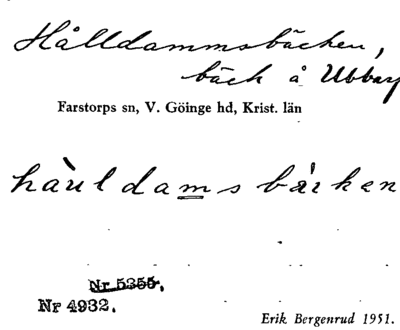 Hålldammsbäcken,
bäck å Ubbarp
Farstorps sn, V. Göinge hd, Krist. län
hàuldamsbä́rken
Nr 5355.
Nr 4932.
Erik Bergenrud 1951.